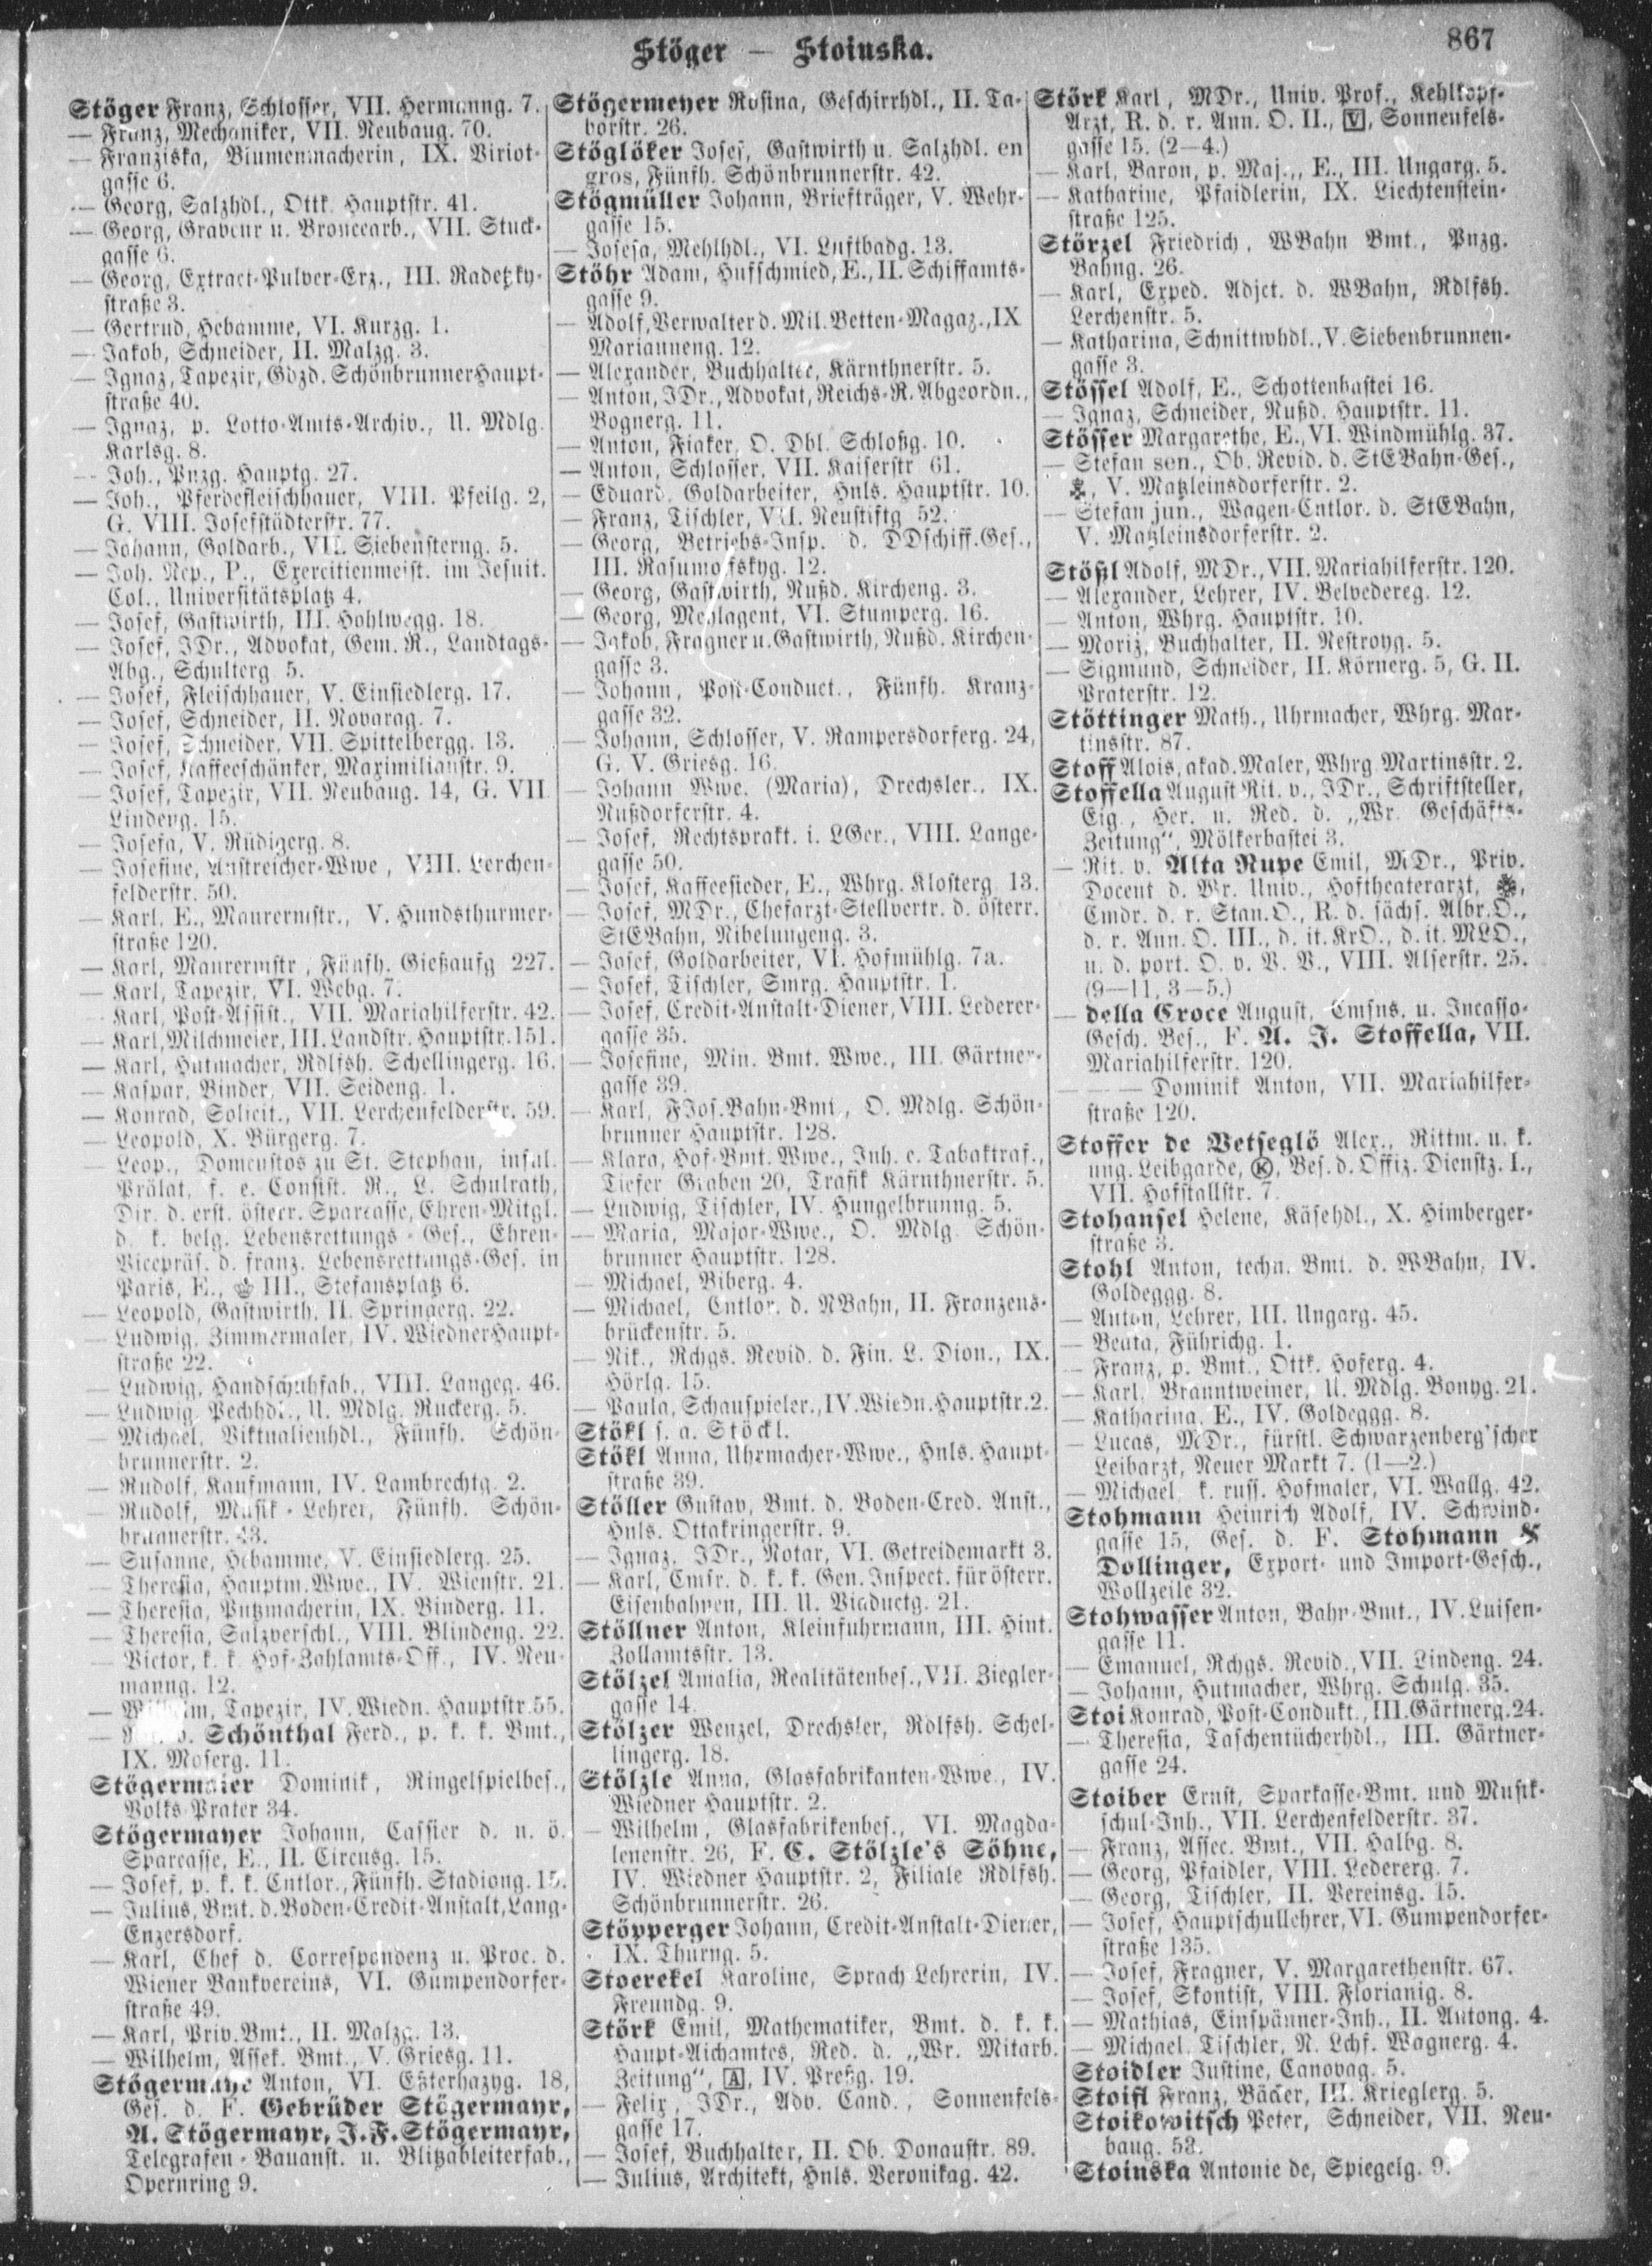 Stöger — Stoinska.
867
Stöger Franz, Schlosser, VII. Hermanng. 7.
— Franz, Mechaniker, VII. Neubaug. 70.
— Franziska, Blumenmacherin, IX. Viriot-
gasse 6.
— Georg, Salzhdl., Ottk. Hauptstr. 41.
— Georg, Graveur u. Broncearb., VII. Stuck-
gasse 6.
— Georg, Extract-Pulver-Erz., III. Radetzky-
straße 3.
— Gertrud, Hebamme, VI. Kurzg. 1.
— Jakob, Schneider, II. Malzg. 3.
— Ignaz, Tapezir, Gdzd. Schönbrunner Haupt-
straße 40.
— Ignaz, p. Lotto-Amts-Archiv., U. Mdlg.
Karlsg. 8.
— Joh., Pnzg. Hauptg. 27.
— Joh., Pferdefleischhauer, VIII. Pfeilg. 2,
G. VIII. Josefstädterstr. 77.
— Johann, Goldarb., VII. Siebensterng. 5.
— Joh. Nep., P., Exercitienmeist. im Jesuit.
Col., Universitätsplatz 4.
— Josef, Gastwirth, III. Hohlwegg. 18.
— Josef, JDr., Advokat, Gem. R., Landtags-
Abg., Schulterg. 5.
— Josef, Fleischhauer, V. Einsiedlerg. 17.
— Josef, Schneider, II. Novarag. 7.
— Josef, Schneider, VII. Spittelbergg. 13.
— Josef, Kaffeeschänker, Maximilianstr. 9.
— Josef, Tapezir, VII. Neubaug. 14, G. VII.
Lindeng. 15.
— Josefa, V. Rüdigerg. 8.
— Josefine, Anstreicher-Wwe, VIII. Lerchen-
felderstr. 50.
— Karl, E., Maurermstr., V. Hundsthurmer-
straße 120.
— Karl, Maurermstr., Fünfh. Gießaufg. 227.
— Karl, Tapezir, VI. Webg. 7.
Karl, Post-Assist., VII. Mariahilferstr. 42.
— Karl, Milchmeier, III. Landstr. Hauptstr. 151.
— Karl, Hutmacher, Rdlfsh. Schellingerg. 16.
— Kaspar, Binder, VII. Seideng. 1.
— Konrad, Solicit., VII. Lerchenfelderstr. 59.
— Leopold, X. Bürgerg. 7.
— Leop., Domcustos zu St. Stephan, inful.
Prälat, f. e. Consist. R., L. Schulrath,
Dir. d. erst. österr. Sparcasse, Ehren-Mitgl.
d. k. belg. Lebensrettungs-Ges., Ehren-
Vicepräs. d. franz. Lebensrettungs-Ges. in
Paris, E., III., Stefansplatz 6.
— Leopold, Gastwirth, II. Springerg. 22.
— Ludwig, Zimmermaler, IV. Wiedner Haupt-
straße 22.
— Ludwig, Handschuhfab., VIII. Langeg. 46.
— Ludwig, Pechhdl., U. Mdlg. Ruckerg. 5.
— Michael, Viktualienhdl., Fünfh. Schön-
brunnerstr. 2.
— Rudolf, Kaufmann, IV. Lambrechtg. 2.
— Rudolf, Musik-Lehrer, Fünfh. Schön-
brunnerstr. 43.
— Susanne, Hebamme, V. Einsiedlerg. 25.
— Theresia, Hauptm. Wwe., IV. Wienstr. 21.
— Theresia, Putzmacherin, IX. Binderg. 11.
— Theresia, Salzverschl., VIII. Blindeng. 22.
— Victor, k. k. Hof-Zahlamts-Off., IV. Neu-
manng. 12.
— Wilhelm, Tapezir, IV. Wiedn. Hauptstr. 55.
— v. Schönthal Ferd., p. k. k. Bmt.,
IX. Moserg. 11.
Stögermaier Dominik, Ringelspielbes.,
Volks-Prater 34.
Stögermayer Johann, Cassier d. n. ö.
Sparcasse, E., II. Circusg. 15.
— Josef, p. k. k. Cntlor., Fünfh. Stadiong. 15.
— Julius, Bmt. d. Boden-Credit-Anstalt, Lang-
Enzersdorf.
— Karl, Chef d. Correspondenz u. Proc. d.
Wiener Bankvereins, VI. Gumpendorfer-
straße 49.
— Karl, Priv. Bmt., II. Malzg. 13.
— Wilhelm, Assek. Bmt., V. Griesg. 11.
Stögermayr Anton, VI. Eßterhazyg. 18,
Ges. d. F. Gebrüder Stögermayr,
A. Stögermayr, J. F. Stögermayr,
Telegrafen-Bauanst. u. Blitzableiterfab.,
Opernring 9.
Stögermeyer Rosina, Geschirrhdl., II. Ta-
borstr. 26.
Stöglöker Josef, Gastwirth u. Salzhdl. en
gros, Fünfh. Schönbrunnerstr. 42.
Stögmüller Johann, Briefträger, V. Wehr-
gasse 15.
— Josefa, Mehlhdl., VI. Luftbadg. 13.
Stöhr Adam, Hufschmied, E., II. Schiffamts-
gasse 9.
— Adolf, Verwalter d. Mil. Betten-Magaz., IX
Marianneng. 12.
— Alexander, Buchhalter, Kärnthnerstr. 5.
— Anton, JDr., Advokat, Reichs-R. Abgeordn.,
Bognerg. 11.
— Anton, Fiaker, O. Dbl. Schloßg. 10.
— Anton, Schlosser, VII. Kaiserstr 61.
— Eduard, Goldarbeiter, Hnls. Hauptstr. 10.
— Franz, Tischler, VII. Neustiftg. 52.
— Georg, Betriebs-Insp. d. DDschiff. Ges.,
III. Rasumoffskyg. 12.
— Georg, Gastwirth, Nußd. Kircheng. 3.
— Georg, Mehlagent, VI. Stumperg. 16.
— Jakob, Fragner u. Gastwirth, Nußd. Kirchen-
gasse 3.
— Johann, Post-Conduct., Fünfh. Kranz-
gasse 32.
— Johann, Schlosser, V. Rampersdorferg. 24,
G. V. Griesg. 16.
— Johann Wwe. (Maria), Drechsler., IX.
Nußdorferstr. 4.
— Josef, Rechtsprakt. i. LGer., VIII. Lange-
gasse 50.
— Josef, Kaffeesieder, E., Whrg. Klosterg. 13.
— Josef, MDr., Chefarzt-Stellvertr. d. österr.
StEBahn, Nibelungeng. 3.
— Josef, Goldarbeiter, VI. Hofmühlg. 7a.
— Josef, Tischler, Smrg. Hauptstr. 1.
— Josef, Credit-Anstalt-Diener, VIII. Lederer-
gasse 35.
— Josefine, Min. Bmt. Wwe., III. Gärtner-
gasse 39.
— Karl, FJos. Bahn-Bmt., O. Mdlg. Schön-
brunner Hauptstr. 128.
— Klara, Hof-Bmt. Wwe., Inh. e. Tabaktraf.,
Tiefer Graben 20, Trafik Kärnthnerstr. 5.
— Ludwig, Tischler, IV. Hungelbrunng. 5.
— Maria, Major-Wwe., O. Mdlg. Schön-
brunner Hauptstr. 128.
— Michael, Biberg. 4.
— Michael, Cntlor. d. NBahn, II. Franzens-
brückenstr. 5.
— Nik., Rchgs. Revid. d. Fin. L. Dion., IX.
Hörlg. 15.
— Paula, Schauspieler., IV. Wiedn. Hauptstr. 2.
Stökl s. a. Stöckl.
Stökl Anna, Uhrmacher-Wwe., Hnls. Haupt-
straße 39.
Stöller Gustav, Bmt. d. Boden-Cred. Anst.,
Hnls. Ottakringerstr. 9.
— Ignaz, JDr., Notar, VI. Getreidemarkt 3.
— Karl, Cmsr. d. k. k. Gen. Inspect. für österr.
Eisenbahnen, III. U. Viaductg. 21.
Stöllner Anton, Kleinfuhrmann, III. Hint.
Zollamtsstr. 13.
Stölzel Amalia, Realitätenbes., VII. Ziegler-
gasse 14.
Stölzer Wenzel, Drechsler, Rdlfsh. Schel-
lingerg. 18.
Stölzle Anna, Glasfabrikanten-Wwe., IV.
Wiedner Hauptstr. 2.
— Wilhelm, Glasfabrikenbes., VI. Magda-
lenenstr. 26, F. C. Stölzle's Söhne,
IV. Wiedner Hauptstr. 2, Filiale Rdlfsh.
Schönbrunnerstr. 26.
Stöpperger Johann, Credit-Anstalt-Diener,
IX. Thurng. 5.
Stoerekel Karoline, Sprach Lehrerin, IV.
Freundg. 9.
Störk Emil, Mathematiker, Bmt. d. k. k.
Haupt-Aichamtes, Red. d. „Wr. Mitarb.
Zeitung“, A, IV. Preßg. 19.
— Felix, JDr., Adv. Cand., Sonnenfels-
gasse 17.
— Josef, Buchhalter, II. Ob. Donaustr. 89.
— Julius, Architekt, Hnls. Veronikag. 42.
Störk Karl, MDr., Univ. Prof., Kehlkopf-
Arzt, R. d. r. Ann. O. II., V, Sonnenfels-
gasse 15. (2—4.)
— Karl, Baron, p. Maj., E., III. Ungarg. 5.
— Katharine, Pfaidlerin, IX. Liechtenstein-
straße 125.
Störzel Friedrich, WBahn Bmt., Pnzg.
Bahng. 26.
— Karl, Exped. Adjct. d. WBahn, Rdlfsh.
Lerchenstr. 5.
— Katharina, Schnittwhdl., V. Siebenbrunnen-
gasse 3.
Stössel Adolf, E., Schottenbastei 16.
— Ignaz, Schneider, Nußd. Hauptstr. 11.
Stösser Margarethe, E., VI. Windmühlg. 37.
— Stefan sen., Ob. Revid. d. StEBahn-Ges.,
V. Matzleinsdorferstr. 2.
— Stefan jun., Wagen-Cntlor. d. StEBahn,
V. Matzleinsdorferstr. 2.
Stößl Adolf, MDr., VII. Mariahilferstr. 120.
— Alexander, Lehrer, IV. Belvedereg. 12.
— Anton, Whrg. Hauptstr. 10.
— Moriz, Buchhalter, II. Nestroyg. 5.
— Sigmund, Schneider, II. Körnerg. 5, G. II.
Praterstr. 12.
Stöttinger Math., Uhrmacher, Whrg. Mar-
tinsstr. 87.
Stoff Alois, akad. Maler, Whrg. Martinsstr. 2.
Stoffella August Rit. v., JDr., Schriftsteller,
Eig., Her. u. Red. d. „Wr. Geschäfts-
Zeitung“, Mölkerbastei 3.
— Rit. v. Alta Rupe Emil, MDr., Priv.
Docent d. Wr. Univ., Hoftheaterarzt,
Cmdr. d. r. Stan. O., R. d. sächs. Albr. O.,
d. r. Ann. O. III., d. it. KrO., d. it. MLO.,
u. d. port. O. v. V. V., VIII. Alserstr. 25.
(9—11, 3—5.)
— della Croce August, Cmsns. u. Incasso-
Gesch. Bes., F. A. J. Stoffella, VII.
Mariahilferstr. 120.
— — — Dominik Anton, VII. Mariahilfer-
straße 120.
Stoffer de Vetseglö Alex., Rittm. u. k.
ung. Leibgarde, K, Bes. d. Offiz. Dienstz. I.,
VII. Hofstallstr. 7.
Stohansel Helene, Käsehdl., X. Himberger-
straße 3.
Stohl Anton, techn. Bmt. d. WBahn, IV.
Goldeggg. 8.
— Anton, Lehrer, III. Ungarg. 45.
— Beata, Führichg. 1.
— Franz, p. Bmt., Ottk. Hoferg. 4.
— Karl, Branntweiner, U. Mdlg. Bonyg. 21.
— Katharina, E., IV. Goldeggg. 8.
— Lucas, MDr., fürstl. Schwarzenberg'scher
Leibarzt, Neuer Markt 7. (1—2.)
— Michael, k. russ. Hofmaler, VI. Wallg. 42.
Stohmann Heinrich Adolf, IV. Schwind-
gasse 15, Ges. d. F. Stohmann &
Dollinger, Export- und Import-Gesch.,
Wollzeile 32.
Stohwasser Anton, Bahn-Bmt., IV. Luisen-
gasse 11.
— Emanuel, Rchgs. Revid., VII. Lindeng. 24.
— Johann, Hutmacher, Whrg. Schulg. 35.
Stoi Konrad, Post-Condukt., III. Gärtnerg. 24.
— Theresia, Taschentücherhdl., III. Gärtner-
gasse 24.
Stoiber Ernst, Sparkasse-Bmt. und Musik-
schul-Inh., VII. Lerchenfelderstr. 37.
— Franz, Assec. Bmt., VII. Halbg. 8.
— Georg, Pfaidler, VIII. Ledererg. 7.
— Georg, Tischler, II. Vereinsg. 15.
— Josef, Hauptschullehrer, VI. Gumpendorfer-
straße 135.
— Josef, Fragner, V. Margarethenstr. 67.
— Josef, Skontist, VIII. Florianig. 8.
— Mathias, Einspänner-Inh., II. Antong. 4.
— Michael, Tischler, N. Lchf. Wagnerg. 4.
Stoidler Justine, Canovag. 5.
Stoifl Franz, Bäcker, III. Krieglerg. 5.
Stoikowitsch Peter, Schneider, VII. Neu-
baug. 53.
Stoinska Antonie de, Spiegelg. 9.